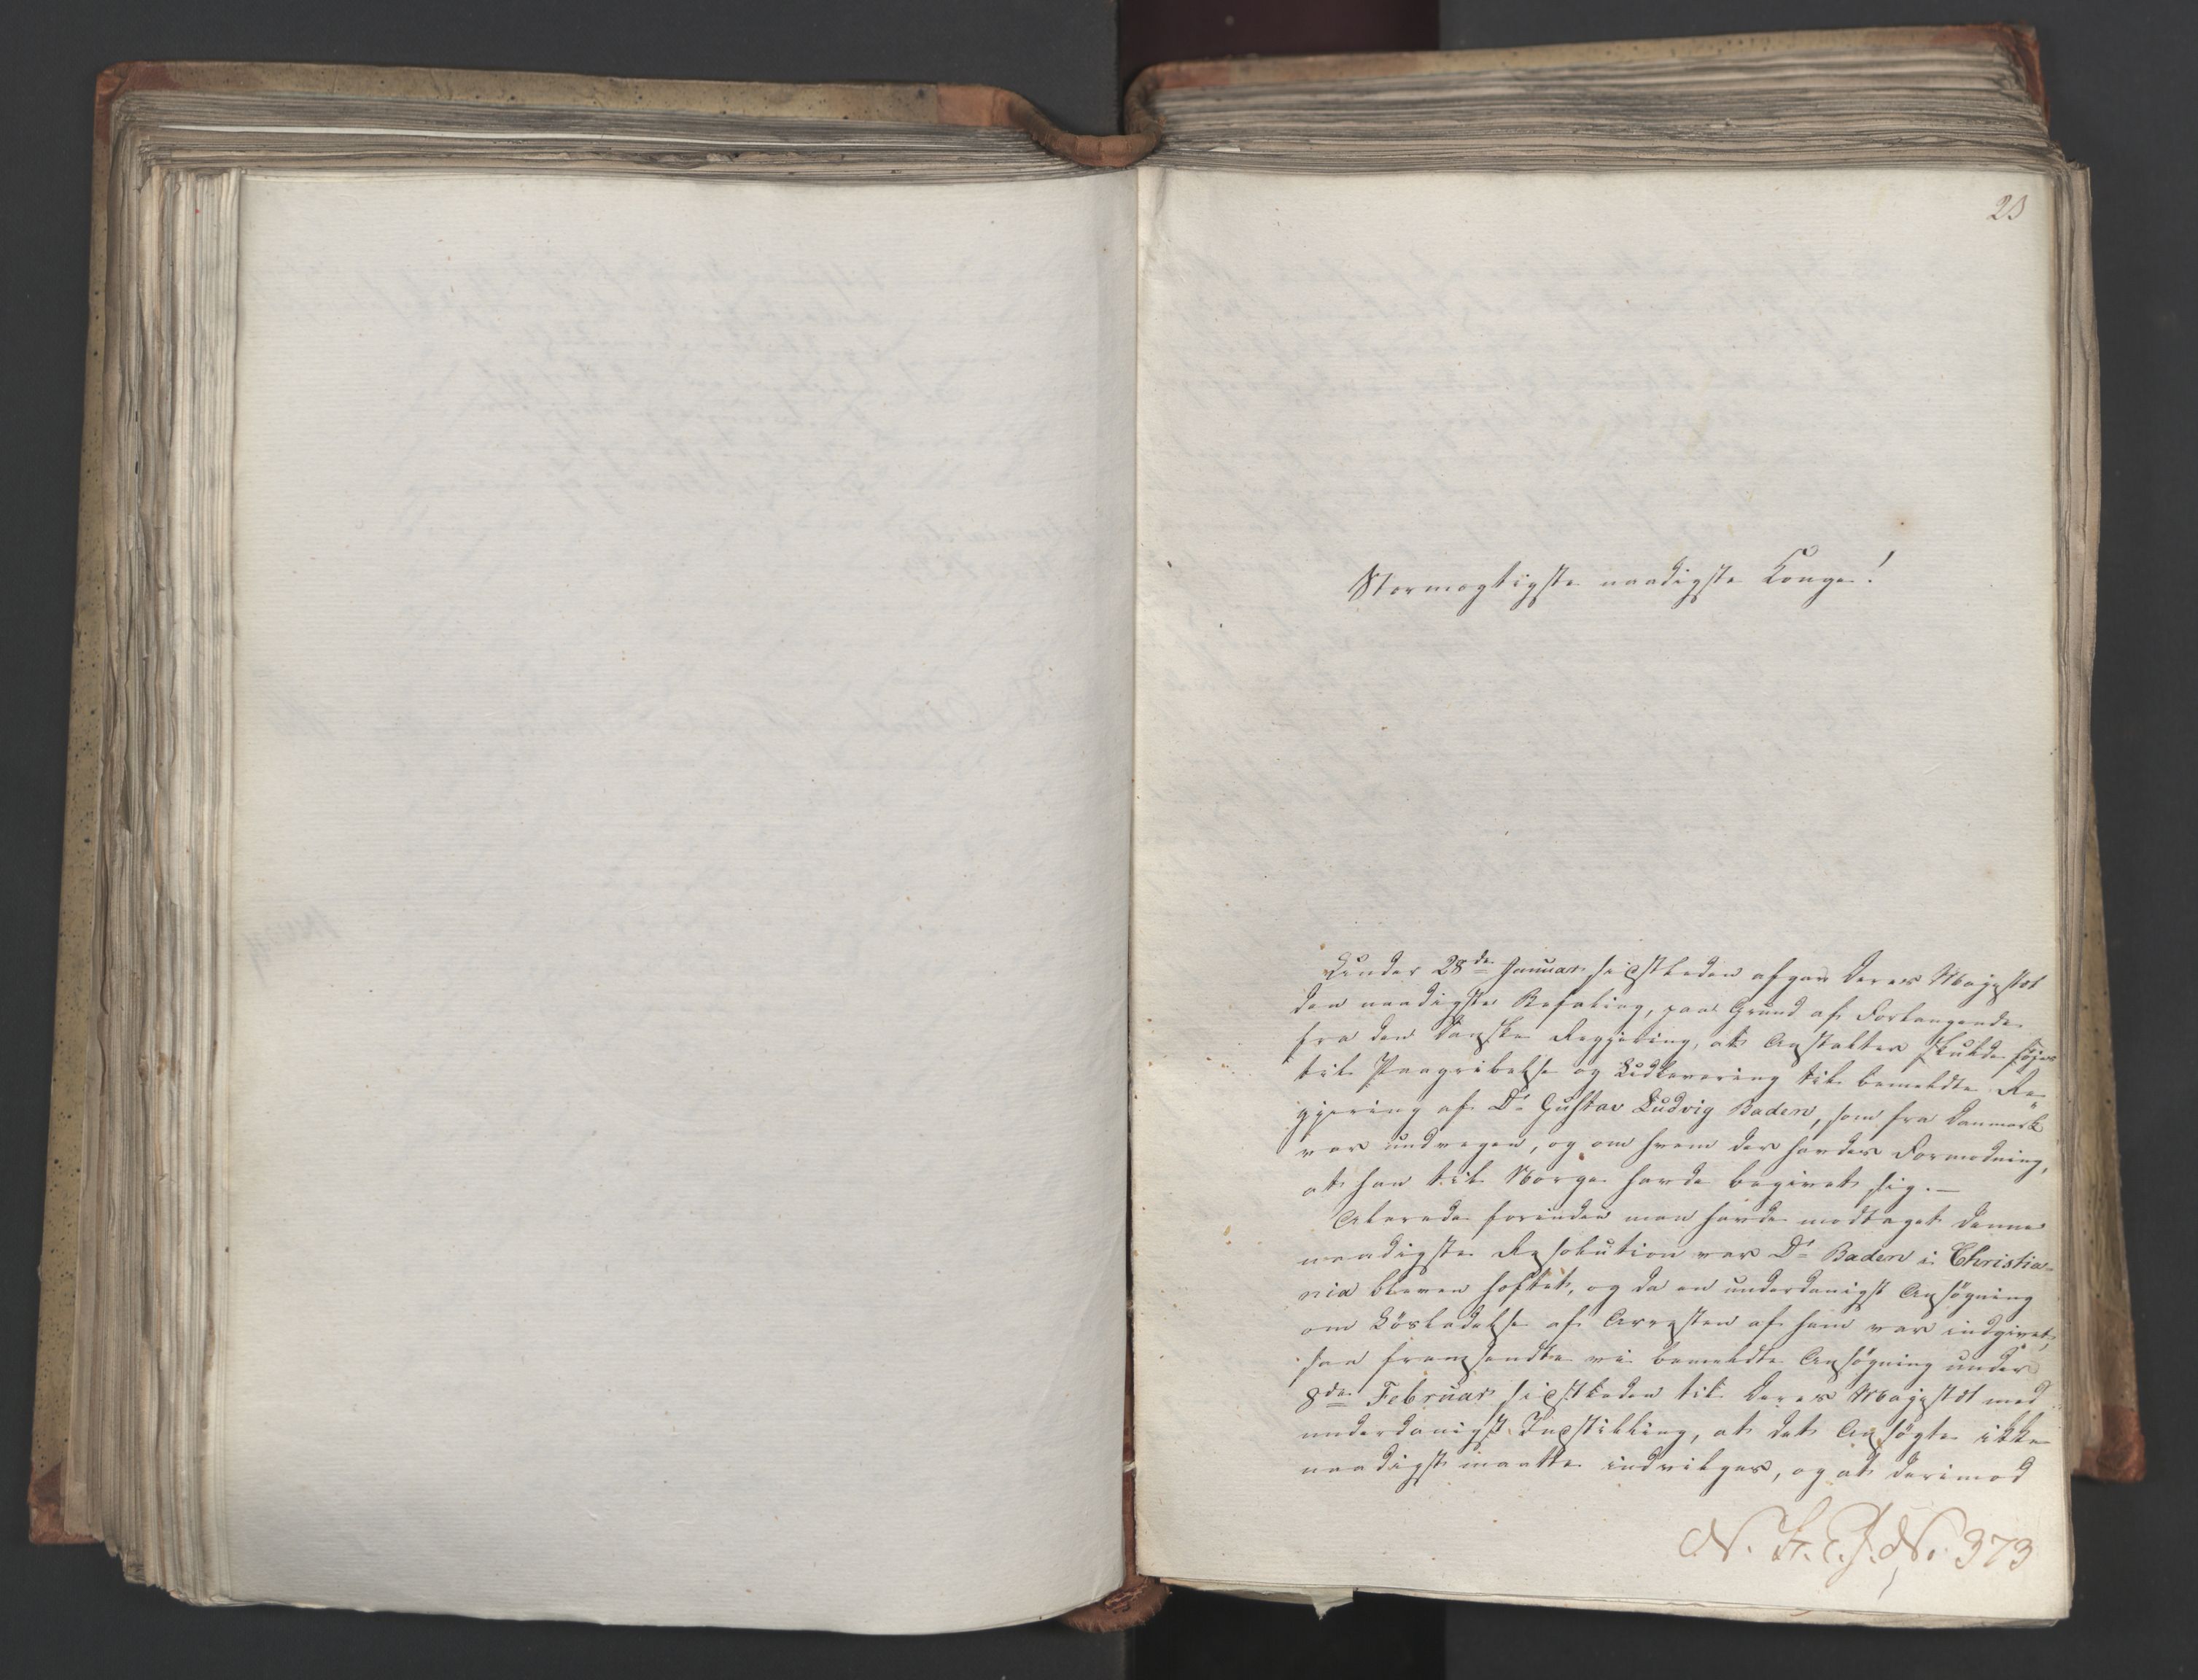 23
Stormægtigste naadigste Konge!
Under 28de Januar sidstleden afgav Deres Majestæt
den naadigste Befaling, paa Grund af Forlangende
fra den Danske Regjering, at Anstalter skulde føjes
til Paagribelse og Udlevering til bemeldte Re-
gjering af Dr Gustav Ludvig Baden, som fra Danmark
var undvegen, og om hvem der havdes Formodning,
at han til Norge havde begivet sig.—
Allerede forinden man havde modtaget denne
naadigste Resolution var Dr Baden i Christia-
nia bleven heftet, og da en underdanigst Ansøgning
om Løsladelse af Arresten af ham var indgivet,
saa fremsendte vi bemeldte Ansøgning under
8de Februar sidstleden til Deres Majestæt med
underdanigst Indstilling, at det Ansøgte ikke
naadigst maatte indvilges, og at derimod
No. 373